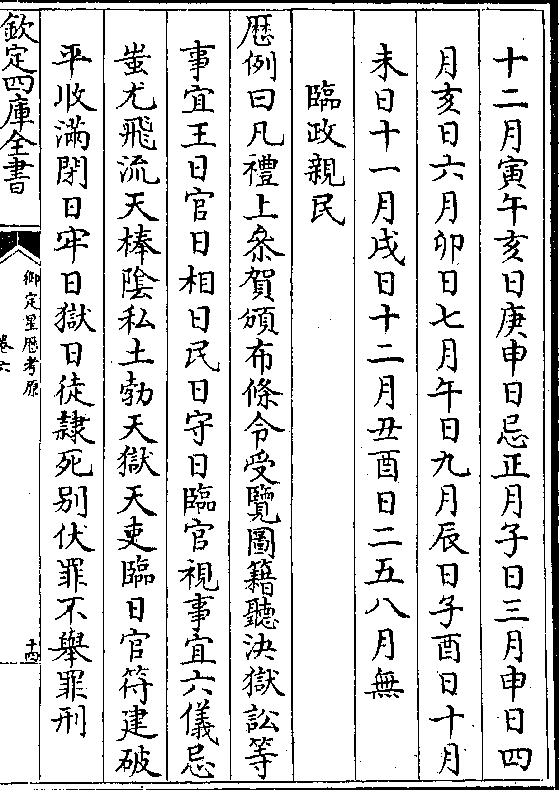 十二月寅午亥日庚申日忌正月子日三月申日四
月亥日六月卯日七月午日九月辰日子酉日十月
未日十一月戌日十二月丑酉日二五八月無
臨政親民
厯例曰凡禮上叅賀頒布條令受覽圖籍聽決獄訟等
事宜王日官日相日民日守日臨官視事宜六儀忌
蚩尤飛流天棒陰私土勃天獄天吏臨日官符建破
平收滿閉日牢日獄日徒隷死别伏罪不舉罪刑
欽定四庫全書
御定星厯考原
卷六
十四